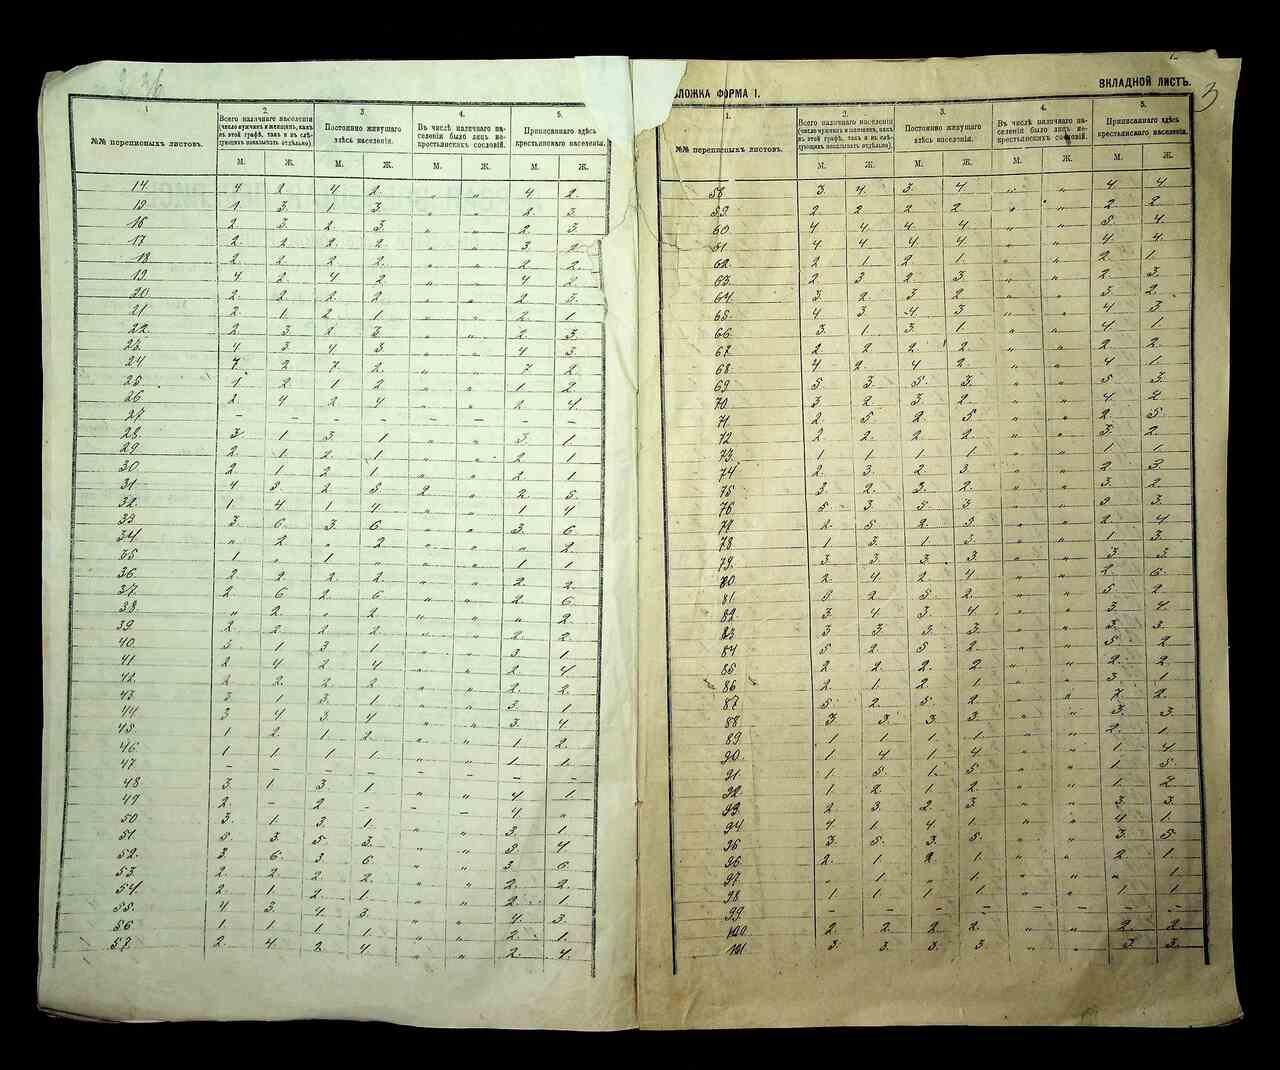 ВКЛАДНОЙ ЛИСТЪ.
3
ФОРМА I.
1
№№ переписныхъ листовъ.
2.
Всего наличнаго населенія
(число мужчинъ и женщинъ, какъ
въ этой графѣ, такъ и въ слѣ-
дующихъ показывать отдѣльно).
3.
Постоянно живущаго
здѣсь населенія.
4.
Въ числѣ наличнаго на-
селенія было лицъ не-
крестьянскихъ сословій.
5.
Приписаннаго здѣсь
крестьянскаго населенія.
М. Ж. М. Ж. М. Ж. М. Ж.
14. 4 2. 4 2. " " 4 2.
15 1. 3. 1. 3. " " 2. 3.
16 2 3. 2. 3. " " 2. 3.
17 2. 2. 2. 2. " " 3. 2.
18 2. 2. 2. 2. " " 2. 2.
19. 4 2. 4 2. " " 4 2.
20 2. 2. 2. 2 " " 2. 3.
21 2. 1. 2. 1. " " 2. 1
22. 2. 3. 2. 3. " " 2. 3
23. 4. 3. 4. 3. " " 4 3.
24 7. 2 7. 2. " " 7 2.
25 1 2. 1 2. " " 1 2.
26 2. 4 2 4 " " 2. 4.
27 – – – – – – – –
28. 3. 1 3. 1. " " 3. 1.
29 2. 1. 2. 1. " " 2. 1
30 2. 1 2. 1. " " 2. 1
31 4 3. 2 3. 2 " 2. 5.
32. 1 4 1 4. " " 1 4
33 3. 6. 3. 6. " " 3. 6
34 " 2. " 2 " " " 2.
35 1 " 1 " " " 1 1
36. 2. 2. 2. 2. " " 2. 2.
37. 2. 6 2. 6 " " 2. 6.
38 " 2. " 2. " " " 2.
39 2. 2. 2. 2. " " 2. 2.
40. 3. 1 3. 1. " " 3. 1
41 2. 4 2. 4 " " 2. 4
42. 2. 2. 2. 2. " " 2. 2.
43. 3. 1 3. 1. " " 3. 1
44. 3 4 3. 4. " " 3. 4
45. 1 2. 1 2. " " 1 2.
46. 1 1. 1 1. " " 1 1.
47 – – – – – – – –
48 3. 1 3. 1. " " 4. 1.
49 2. – 2. – – – 4. "
50 3. 1. 3. 1. " " 3. 1
51. 5 3. 5. 3. " " 5. 4
52. 3. 6. 3. 6. " " 3 6.
53. 2. 2. 2. 2. " " 2. 2.
54. 2. 1 2. 1. " " 2. 1
55. 4 3. 4. 3. " " 4. 3.
56 1. 1. 1. 1. " " 2. 1.
57 2. 4. 2. 4. " " 2. 4.
1.
№№ переписныхъ листовъ.
2.
Всего наличнаго населенія
(число мужчинъ и женщинъ, какъ
въ этой графѣ, такъ и въ слѣ-
дующихъ показывать отдѣльно).
3.
Постоянно живущаго
здѣсь населенія.
4.
Въ числѣ наличнаго на-
селенія было лицъ не-
крестьянскихъ сословій.
5.
Приписаннаго здѣсь
крестьянскаго населенія.
М. Ж. М. Ж. М. Ж. М. Ж.
58. 3. 4. 3. 4 " " 4. 4.
59. 2 2. 2 2 " " 2 2.
60. 4 4. 4. 4. " " 5. 4.
61. 4 4. 4. 4. " " 4. 4.
62. 2 1. 2 1. " " 2. 1.
63. 2 3 2 3. " " 2. 3.
64. 3. 2. 3 2 " " 3. 2.
65. 4 3 4 3 " " 4 3
66. 3. 1 3 1. " " 4 1.
67. 2 2 2. 2 " " 2. 2.
68 4 2. 4 2. " " 4 1.
69 5 3. 5. 3. " " 5 3.
70. 3 2. 3. 2. " " 4. 2
71. 2. 5 2. 5. " " 2. 5.
72 2. 2. 2. 2. " " 3. 2.
73. 1 1. 1 1 " " 1 1
74 2. 3. 2. 3 " " 2 3.
75 3. 2. 3. 2. " " 3. 2
76 5 3. 5 3 " " 5 3.
77 2. 5 2. 5. " " 2. 4
78 1 3. 1 3. " " 1 3.
79. 3 3. 3. 3. " " 3. 3.
80 2. 4. 2. 4 " " 2. 6.
81 5 2 5 2. " " 5. 2
82 3. 4 3. 4. " " 3. 4.
83 3 3. 3. 3. " " 3. 3.
84 5 2. 5 2. " " 5 2
85 2. 2. 2. 2 " " 2. 2.
86 2. 1. 2. 1. " " 3. 1
87 5. 2. 5. 2. " " 7. 2.
88 3. 3. 3. 3. " " 3. 3.
89 1 1. 1 1. " " 2. 1.
90. 1 4 1 4 " " 1 4
91 1. 5. 1. 5 " " 1. 5.
92 1 2. 1 2. " " 1. 2
93. 2. 3. 2. 3. " " 3. 3.
94 4. 1. 4. 1. " " 4 1.
95 3. 5. 3. 5. " " 3. 5
96 2. 1. 2. 1. " " 2. 1.
97 " 1. " 1. " " " 1.
98 1 1. 1 1. " " 1 1
99 – – – – – – – –
100 2. 2. 2. 2. " " 2. 2.
101 3. 3. 3. 3. " " 3. 3.